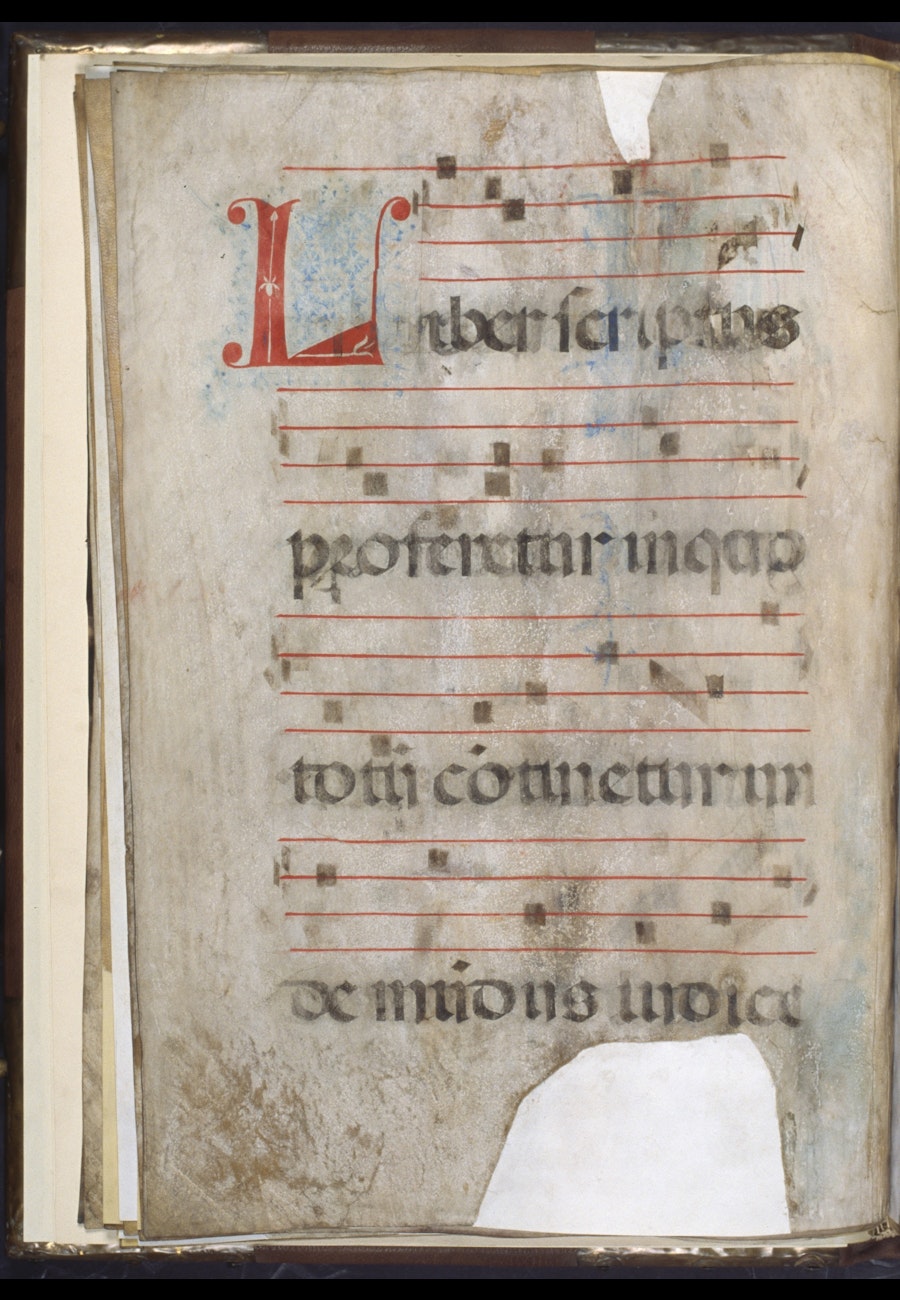 Liber scriptus
proferetur inquo
totũ cõtinetur un
de mũdus iudice